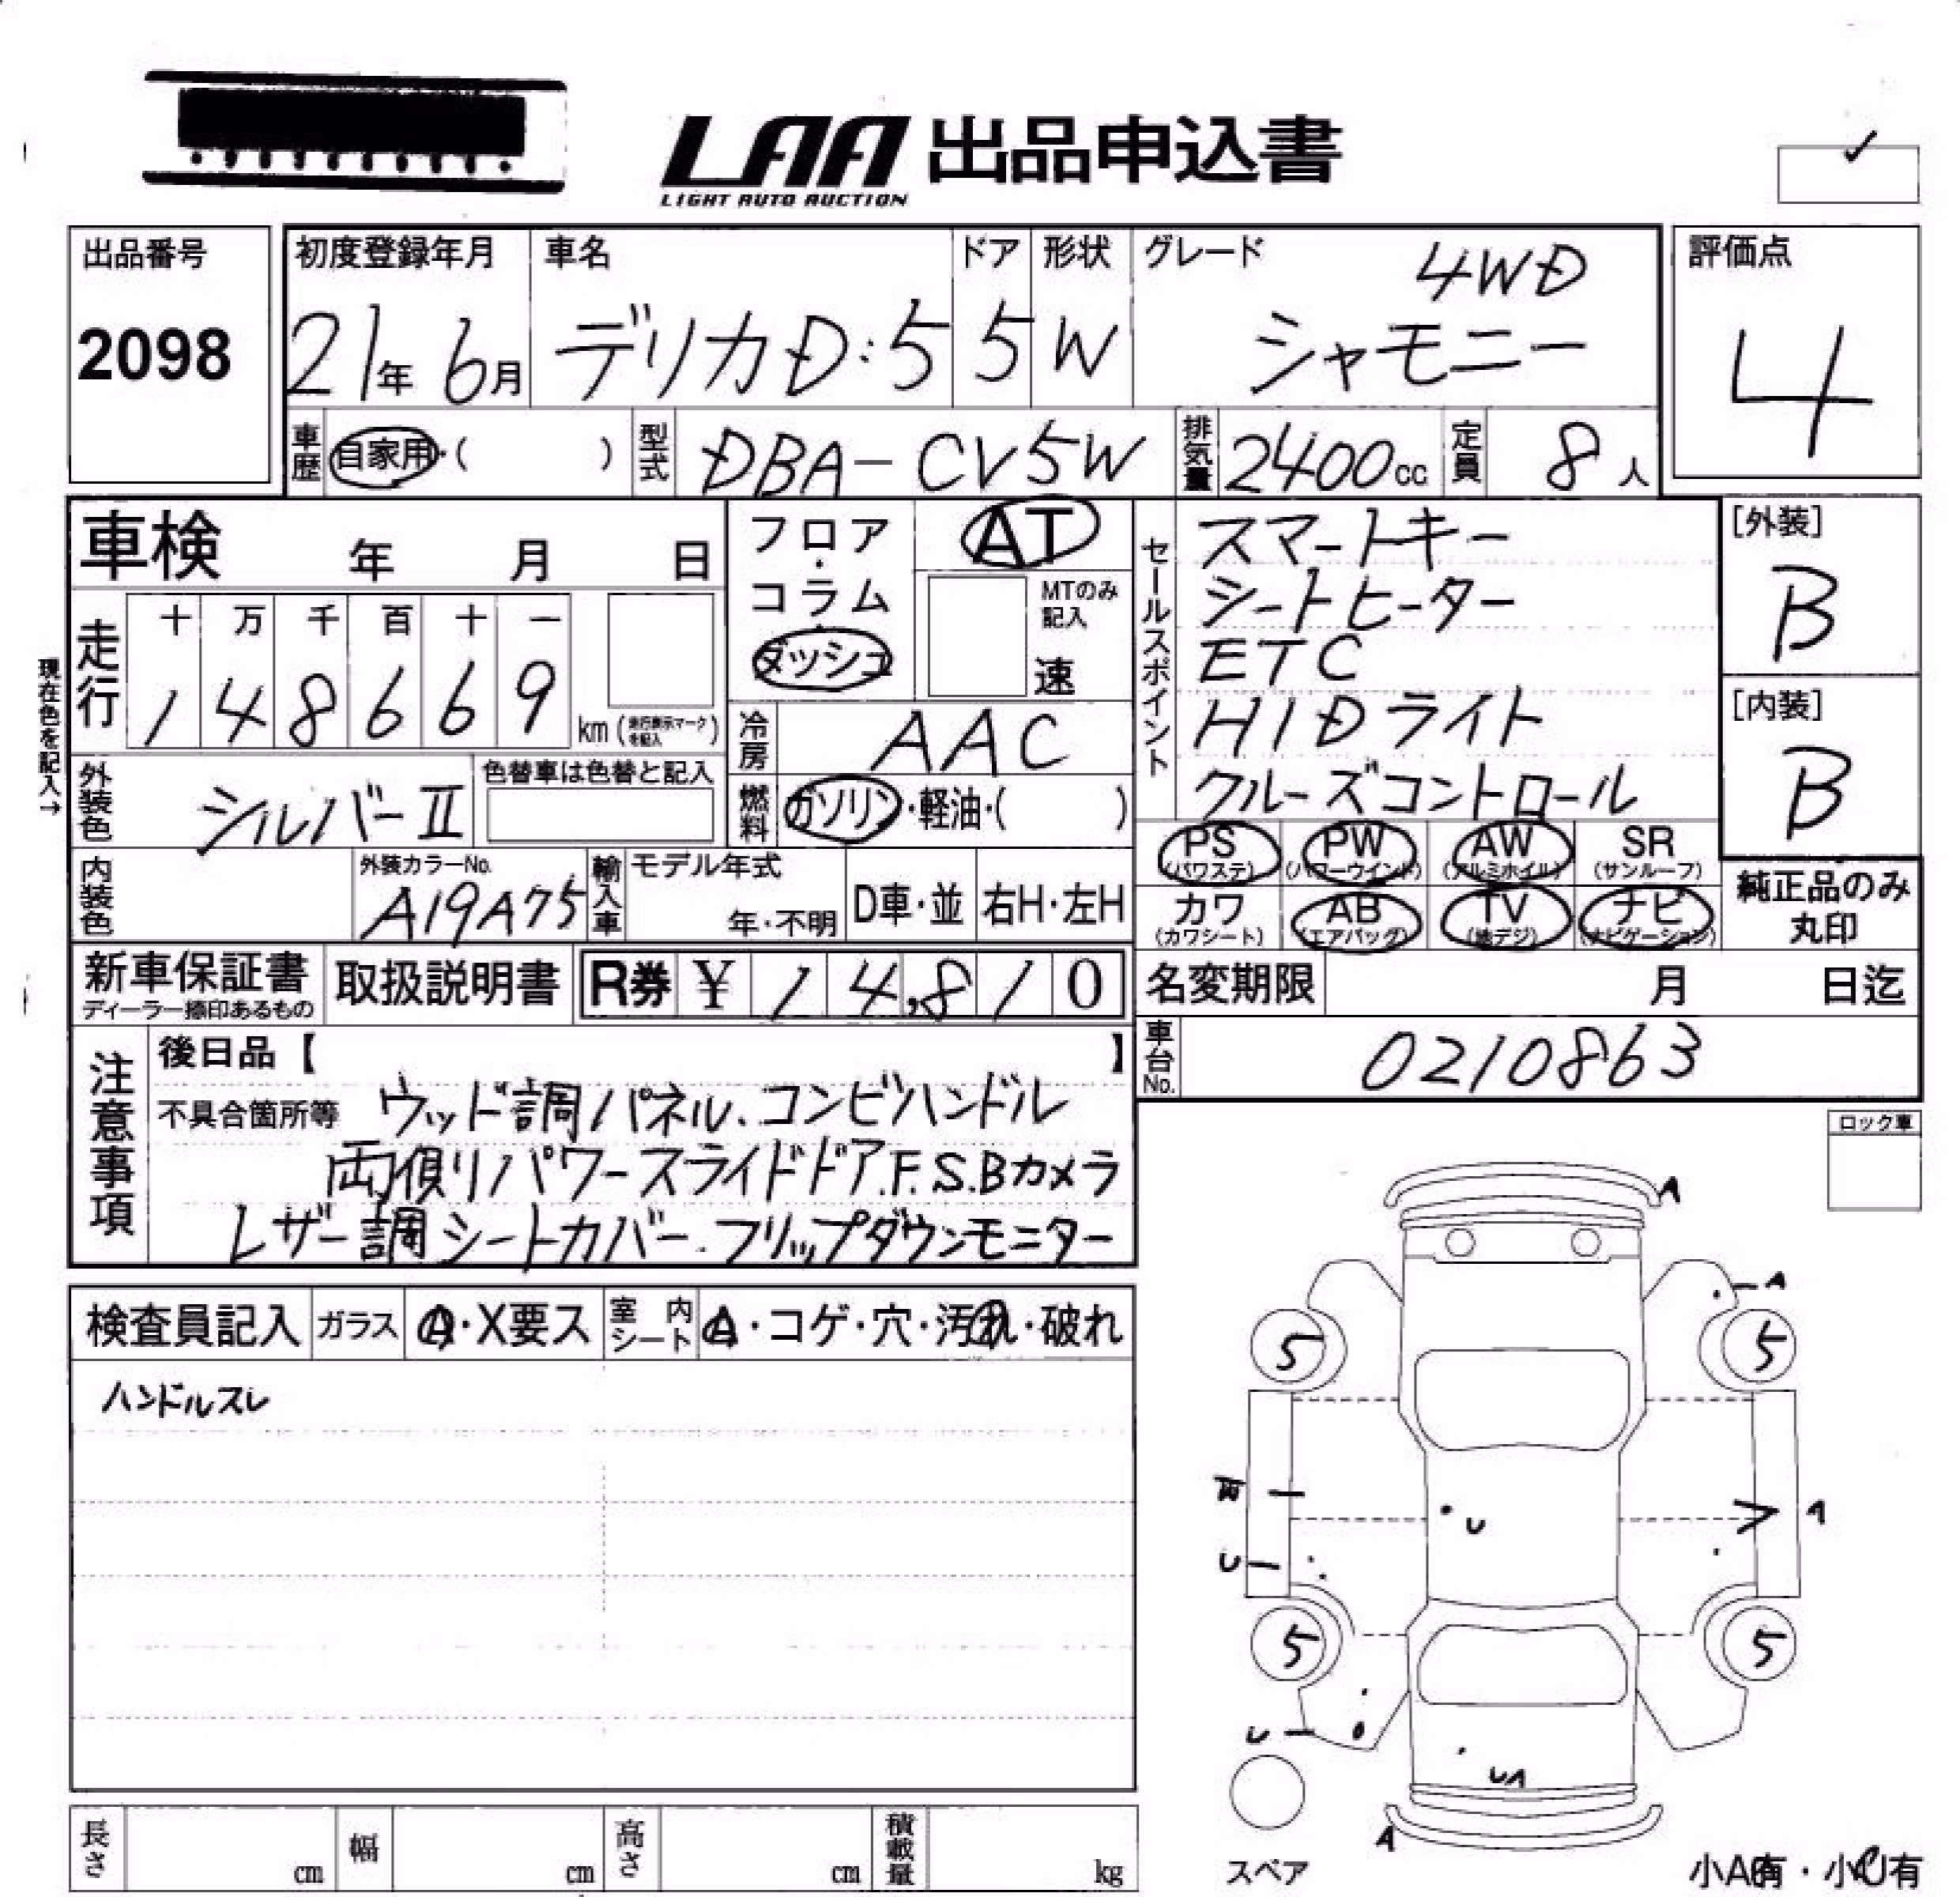 LAA 出品申込書
LIGHT AUTO AUCTION
出品番号
2098
初度登録年月
21年 6月
車名
デリカD:5
ドア
5
形状
W
グレード
4WD
シャモニー
評価点
4
車歴
自家用・( )
型式
DBA-CV5W
排気量
2400cc
定員
8人
車検 年 月 日
走行
十 万 千 百 十 一
1 4 8 6 6 9
km(走行表示マークを記入)
現在色を記入→
外装色
シルバーII
色替車は色替と記入
内装色
外装カラーNo.
A19A75
輸入車
モデル年式
年・不明
D車・並
右H・左H
フロア・コラム・ダッシュ
AT
MTのみ記入
速
冷房
AAC
燃料
ガソリン・軽油・( )
セールスポイント
スマートキー
シートヒーター
ETC
HIDライト
クルーズコントロール
[外装]
B
[内装]
B
PS (パワステ)
PW (パワーウインド)
AW (アルミホイル)
SR (サンルーフ)
カワ (カワシート)
AB (エアバッグ)
TV (地デジ)
ナビ (ナビゲーション)
純正品のみ
丸印
新車保証書
ディーラー捺印あるもの
取扱説明書
R券 ¥ 14,810
名変期限 月 日迄
車台No.
0210863
注意事項
後日品【 】
不具合箇所等 ウッド調パネル.コンビハンドル
両側リパワースライドドア.F.S.Bカメラ
レザー調シートカバー.フリップダウンモニター
検査員記入
ガラス
A・X要ス
室内シート
A・コゲ・穴・汚れ・破れ
ハンドルスレ
ロック車
A
A
5
5
A
U
U
5
5
U
UA
A
スペア
小A有・小U有
長さ cm
幅 cm
高さ cm
積載量 kg